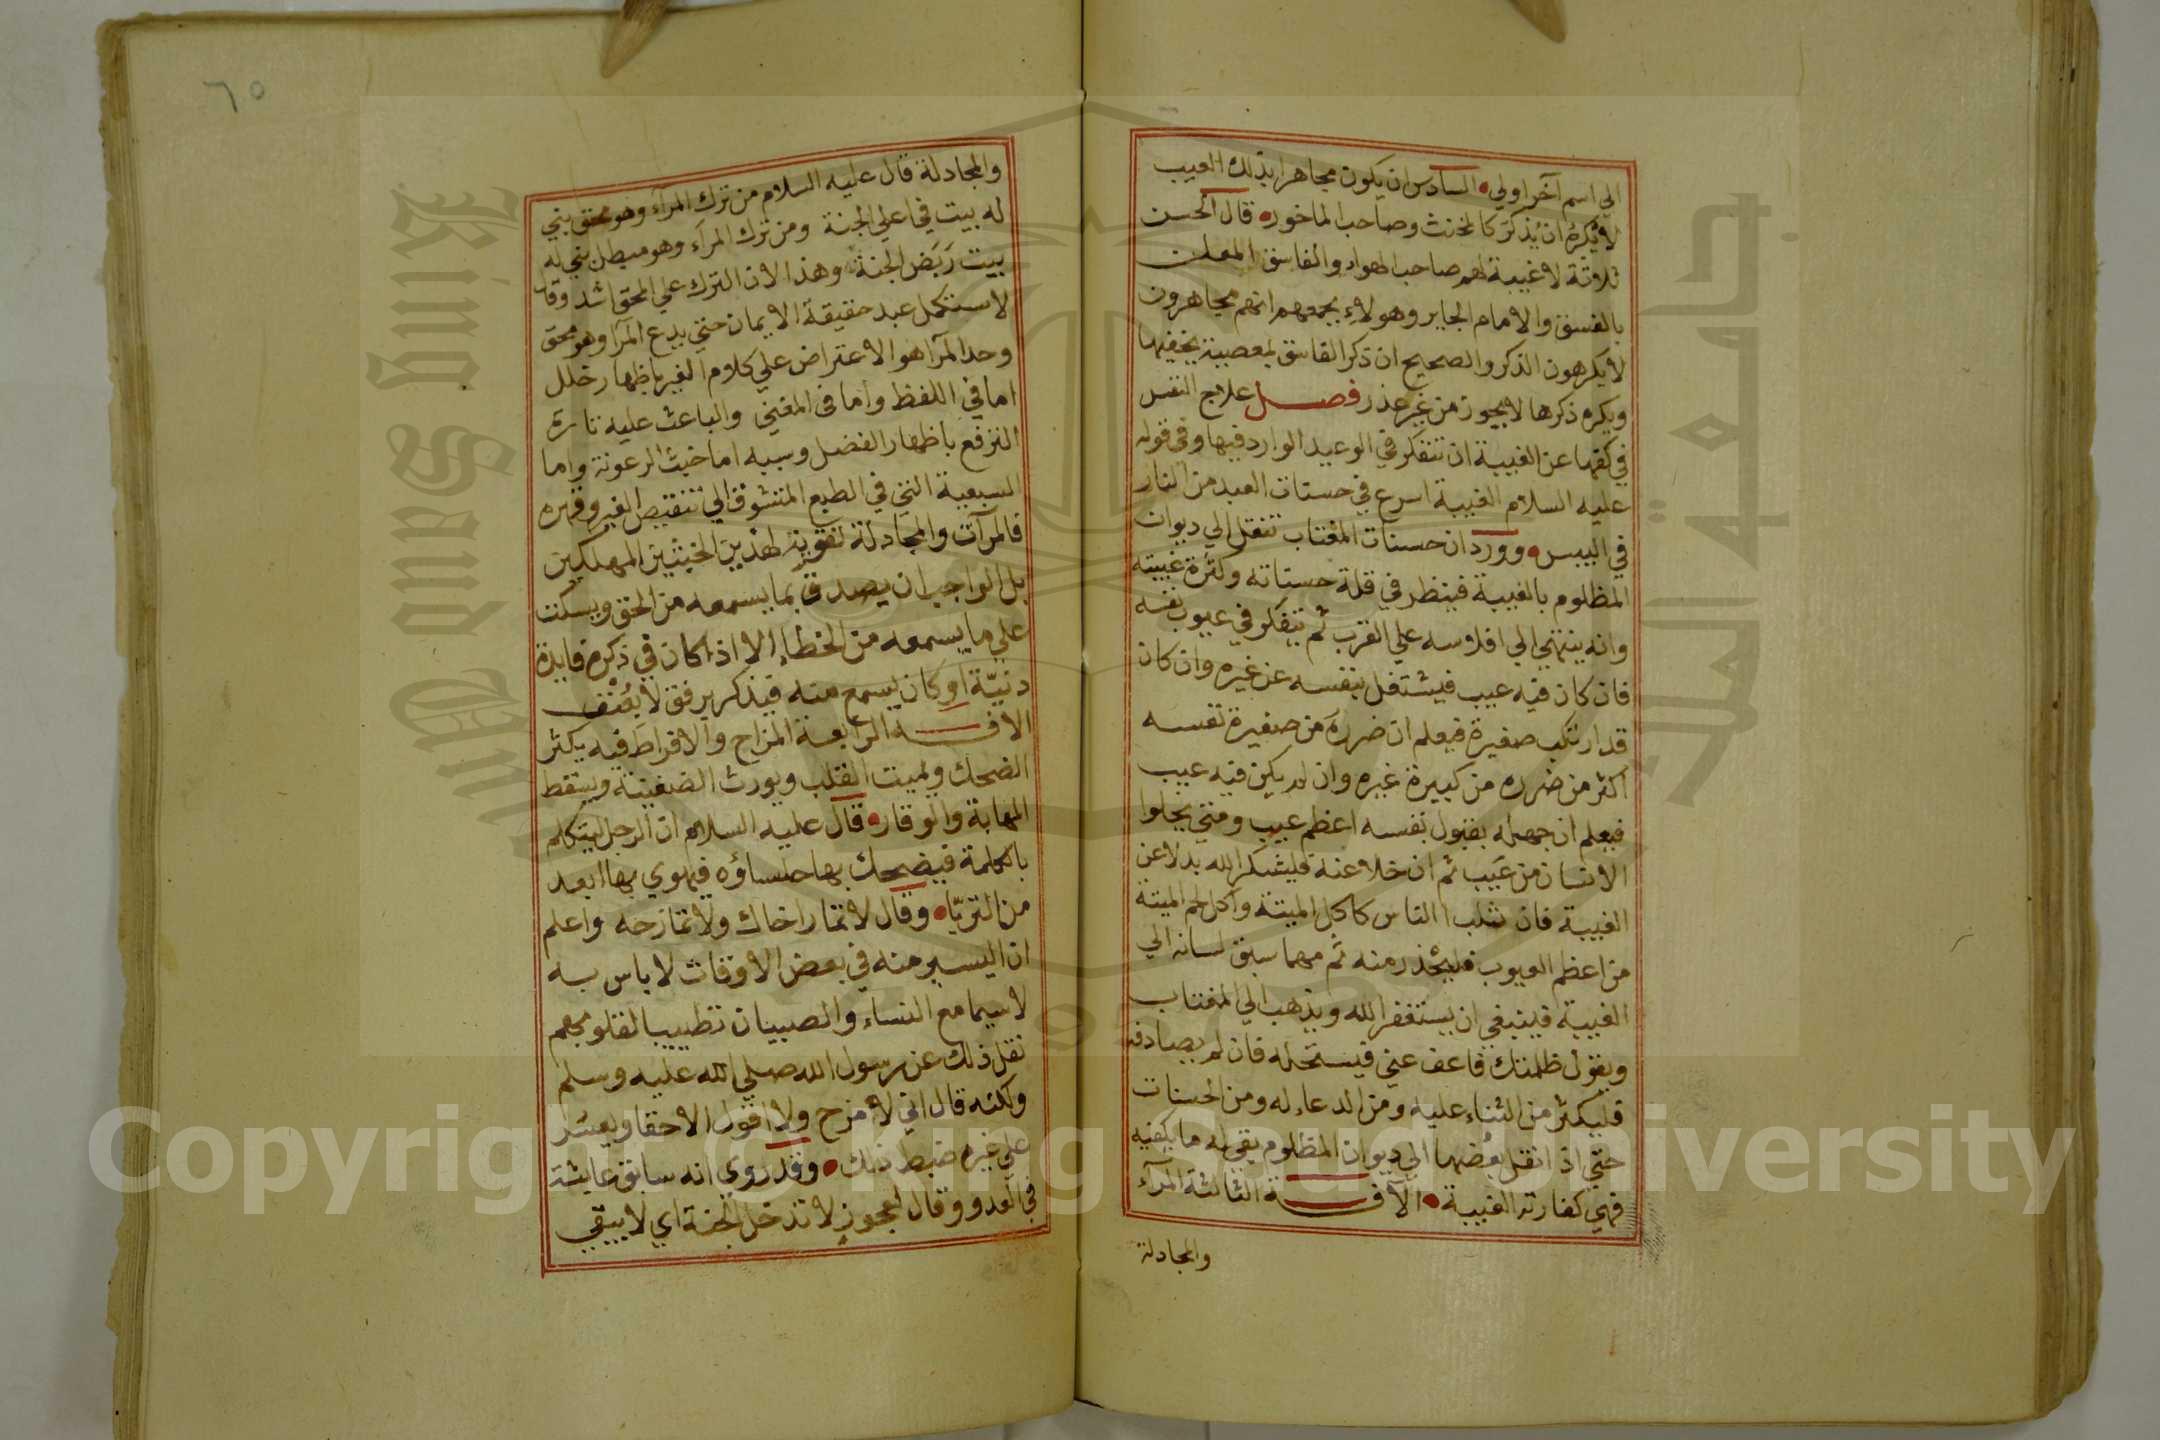 الي اسم آخر اولي السادس ان يكون مجاهرا بذلك العيب
لا يكره ان يذكر كالمخنث وصاحب الماخور قال الحسن
ثلاثة لا غيبة لهم صاحب الهواء والفاسق المعلن
بالفسق والامام الجاير وهولاء يجمعهم انهم مجاهرون
لا يكرهون الذكر والصحيح ان ذكر الفاسق لمعصية يخفيها
ويكره ذكرها لا يجوز من غير عذر فصل علاج النفس
في كفها عن الغيبة ان تتفكر في الوعيد الوارد فيها وفي قوله
عليه السلام الغيبة اسرع في حسنات العبد من النار
في اليبس وورد ان حسنات المغتاب تنقل الي ديوان
المظلوم بالغيبة فينظر في قلة حسناته وكثرة غيبته
وانه ينتهي الي افلاسه علي القرب ثم يتفكر في عيوب نفسه
فان كان فيه عيب فيشتغل بنفسه عن غيره وان كان
قد ارتكب صغيرة فيعلم ان ضرره من صغيرة نفسه
اكثر من ضرره من كبيرة غيره وان لم يكن فيه عيب
فيعلم ان جهله بعيوب نفسه اعظم عيب ومتي يخلوا
الانسان من عيب ثم ان خلا عنه فليشكر الله بدلا عن
الغيبة فان ثلب الناس كاكل الميتة واكل لحم الميتة
من اعظم العيوب فليحذر منه ثم مهما سبق لسانه الي
الغيبة فينبغي ان يستغفر الله ويذهب الي المغتاب
ويقول ظلمتك فاعف عني فيستحله فان لم يصادفه
فليكثر من الثناء عليه ومن الدعاء له ومن الحسنات
حتي اذ انقل بعضها الي ديوان المظلوم بقي له ما يكفيه
فهي كفارة الغيبة الآفة الثالثة المرآء
والمجادلة
٦٥
والمجادلة قال عليه السلام من ترك المرآء وهو محق بني
له بيت في اعلي الجنة ومن ترك المرآء وهو مبطل بني له
بيت رَبَض الجنة وهذا لان الترك علي المحق اشد وقال
لا يستكمل عبد حقيقة الايمان حتي يدع المرآ وهو محق
وحد المرآ هو الاعتراض علي كلام الغير باظهار خلل
اما في اللفظ واما في المعني والباعث عليه تارة
الترفع باظهار الفضل وسببه اما خبث الرعونة واما
السبعية التي في الطبع المتشوق الي تنقيص الغير وقهره
فالمرآت والمجادلة تقوية لهذين الخبيثين المهلكين
بل الواجب ان يصدق بما يسمعه من الحق ويسكت
علي ما يسمعه من الخطاء الا اذا كان في ذكره فايدة
دنيّة او كان يسمع منه فيذكر برفق لا بعُنْف
الافه الرابعة المزاح والافراط فيه يكثر
الضحك ويميت القلب ويورث الضغينة ويسقط
المهابة والوقار قال عليه السلام ان الرجل ليتكلم
بالكلمة فيضحك بها جلساؤه فيهوي بها ابعد
من الثريّا وقال لا تمار اخاك ولا تمازحه واعلم
ان اليسير منه في بعض الاوقات لا باس به
لا سيما مع النساء والصبيان تطييبا لقلوبهم
نقل ذلك عن رسول الله صلي الله عليه وسلم
ولكنه قال اني لامزح ولا اقول الا حقا ويعسر
علي غيره ضبط ذلك وقد روي انه سابق عايشة
في العدو وقال لعجوز لا تدخل الجنة اي لا يبقي
King Saud University
جامعة الملك
Copyright © King Saud University